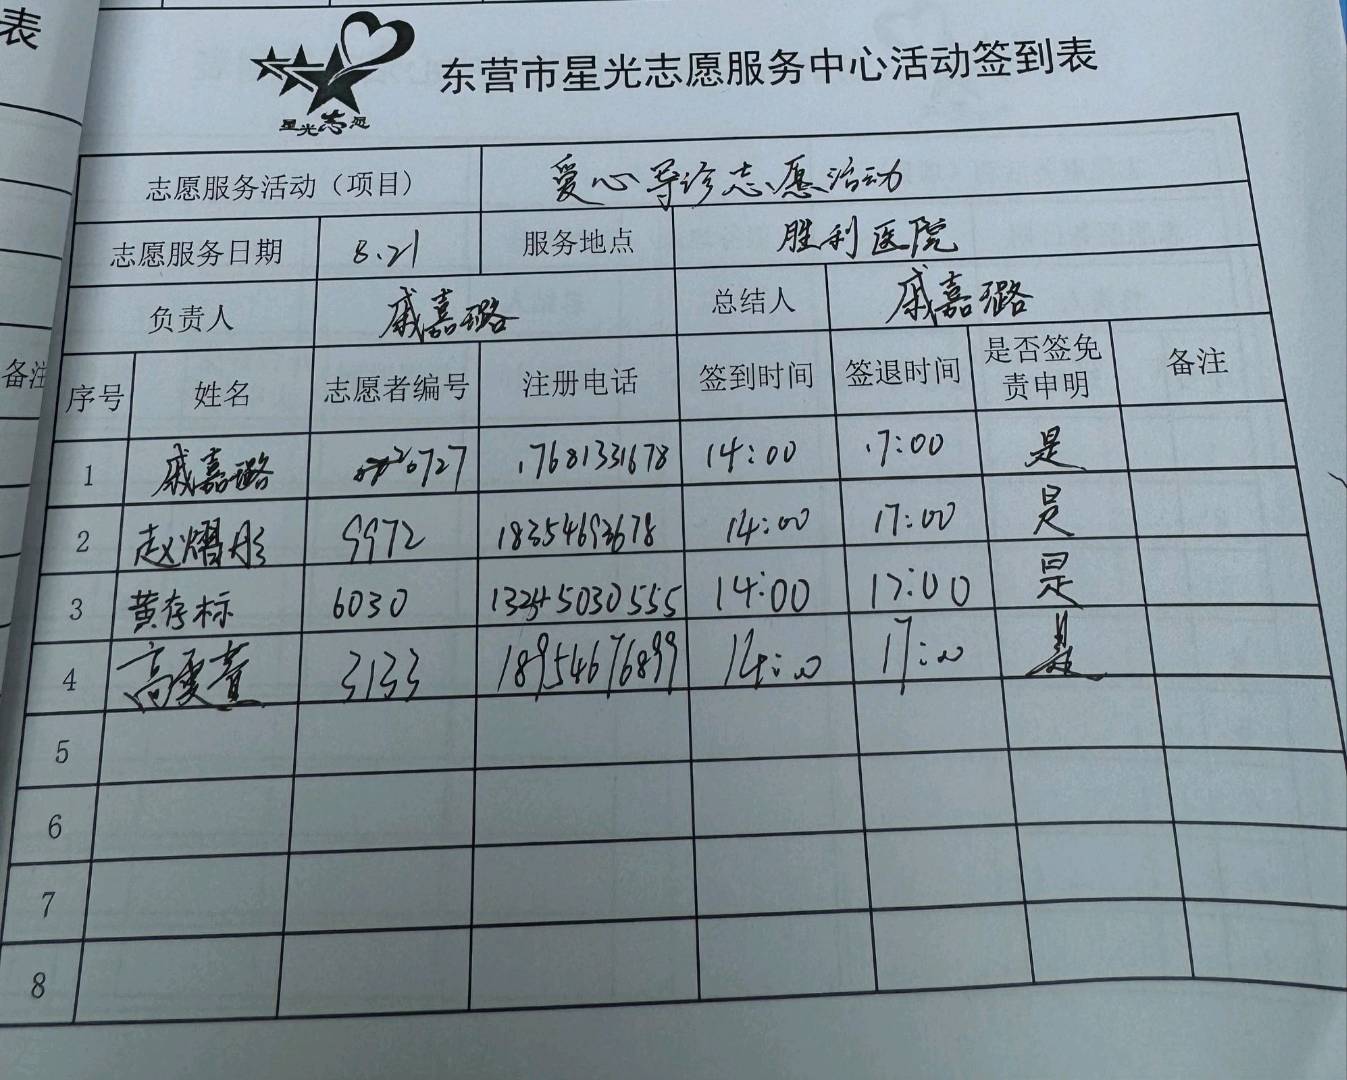 表
星光志愿
东营市星光志愿服务中心活动签到表
志愿服务活动（项目） 爱心导诊志愿活动
志愿服务日期 8.21 服务地点 胜利医院
负责人 戚嘉璐 总结人 戚嘉璐
备注
序号 姓名 志愿者编号 注册电话 签到时间 签退时间 是否签免责申明 备注
1 戚嘉璐 20727 17681331678 14:00 17:00 是
2 赵熠彤 9972 18354693678 14:00 17:00 是
3 黄存标 6030 5030555 14:00 17:00 是
4 高雯萱 3133 18954676899 14:00 17:00 是
5
6
7
8